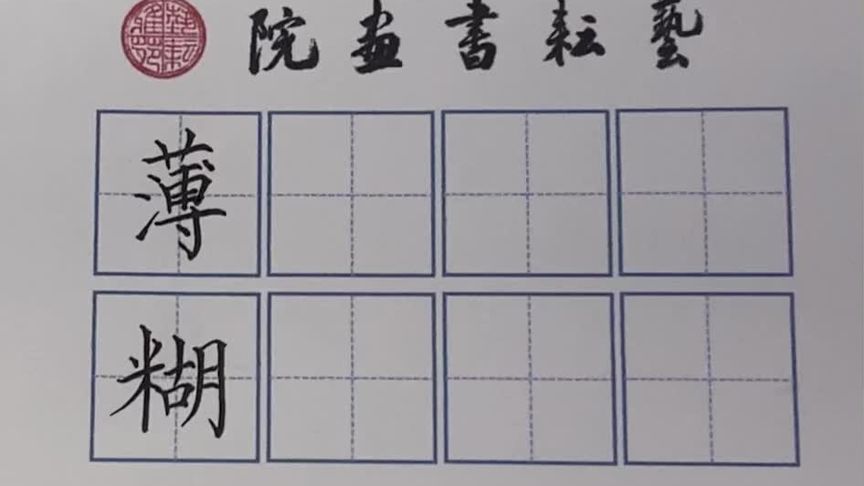 藝耘書畫院
薄
糊